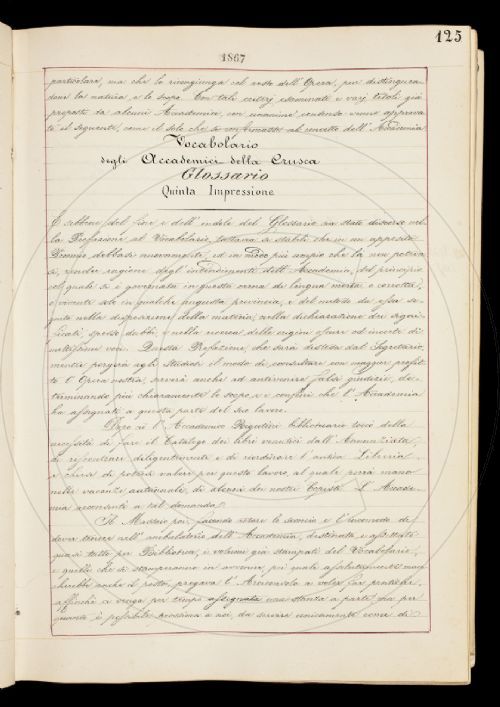 125
1867
particolare, ma che la ricongiunga col resto dell'Opera, pur distinguen-
done la natura, e lo scopo. Con tali criterj esaminati i varj titoli già
proposti da alcuni Accademici, con unanime consenso venne approva-
to il seguente, come il solo che si informasse al concetto dell'Accademia
Vocabolario
degli Accademici della Crusca
Glossario
Quinta Impressione
E sebbene del fine e dell'indole del Glossario sia stato discorso nel-
la Prefazione al Vocabolario, pure a stabilì che in un apposito
Proemio debbasi nuovamente, ed in modo più ampio che là non poteva-
si, render ragione degl'intendimenti dell'Accademia, del principio
col quale si è governata in questa cerna di lingua morta o corrotta,
o vivente solo in qualche angusta provincia, e del metodo da essa se-
guito nella disposizione della materia, nella dichiarazione dei signi-
ficati, spesso dubbi, e nella ricerca delle origini oscure od incerte di
moltissime voci. Questa Prefazione, che sarà distesa dal Segretario,
mentre porgerà agli studiosi il modo di consultare con maggior profit-
to l'Opera nostra, servirà anche ad antivenire falsi giudizii, de-
terminando più chiaramente lo scopo, e i confini che l'Accademia
ha assegnati a questa parte del suo lavoro.
Dopo ciò l'Accademico Bigatini bibliotecario toccò della
necessità di fare il Catalogo dei libri venutici dall'Annunziata,
di riscontrare diligentemente e di riordinare l'antica Libreria
e chiese di potersi valere per questo lavoro, al quale porrà mano
nelle vacanze autunnali, di alcuni dei nostri Copisti. L'Accade-
mia acconsentì a tal domanda.
Il Massaio poi, facendo notare lo sconcio e l'incomodo di
dover tenere nell'ambulatorio dell'Accademia, destinato e assettato
quasi tutto per Biblioteca, i volumi già stampati del Vocabolario,
e quelli che si stamperanno in avvenire, pei quali assolutamente man-
cherebbe anche il posto, pregava l'Arciconsolo a voler far pratiche,
affinchè ci venga per tempo assegnata una stanza a parte sia per
quanto è possibile prossima a noi, da servire unicamente come di